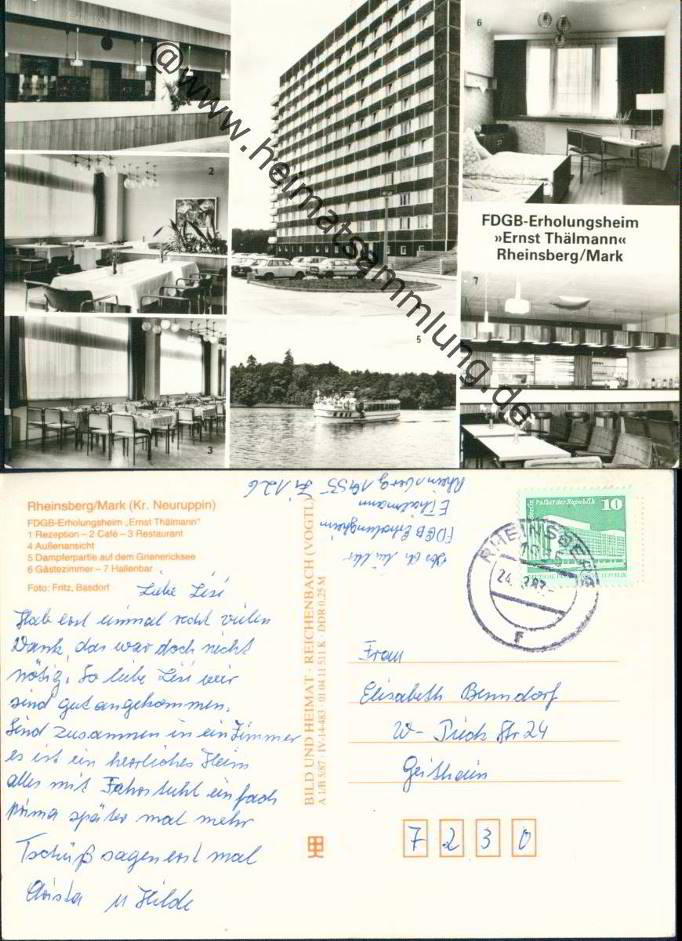 @www.heimatsammlung.de
2
3
5
6
7
FDGB-Erholungsheim
»Ernst Thälmann«
Rheinsberg/Mark
Rheinsberg/Mark (Kr. Neuruppin)
FDGB-Erholungsheim „Ernst Thälmann"
1 Rezeption – 2 Café – 3 Restaurant
4 Außenansicht
5 Dampferpartie auf dem Grienericksee
6 Gästezimmer – 7 Hallenbar
Foto: Fritz, Basdorf
Liebe Lisi
Hab erst einmal recht vielen
Dank, das war doch nicht
nötig. So liebe Lisi wir
sind gut angekommen.
Sind zusammen in ein Zimmer
es ist ein herrliches Heim
alles mit Fahrstuhl einfach
prima später mal mehr
Tschüß sagen erst mal
Christa u Hilde
FDGB Erholungsheim
E Thälmann
Rheinsberg 1955 Zi 126
BILD UND HEIMAT · REICHENBACH (VOGTL)
A 1/B 5/87 IV-14-483 01 04 11 511 K DDR 0,25 M
Palast der Republik
10
RHEINSBERG
1955
F
Frau
Elisabeth Benndorf
W-Pieck Str 24
Geithain
7 2 3 0